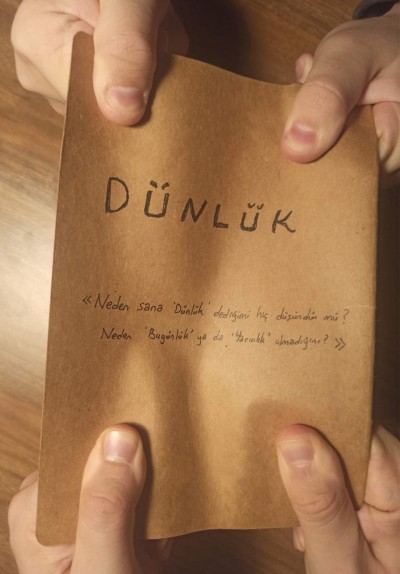 DÜNLÜK
«Neden sana 'Dünlük' dediğimi hiç düşündün mü?
Neden 'Bugünlük' ya da 'Yarınlık' olmadığını?»